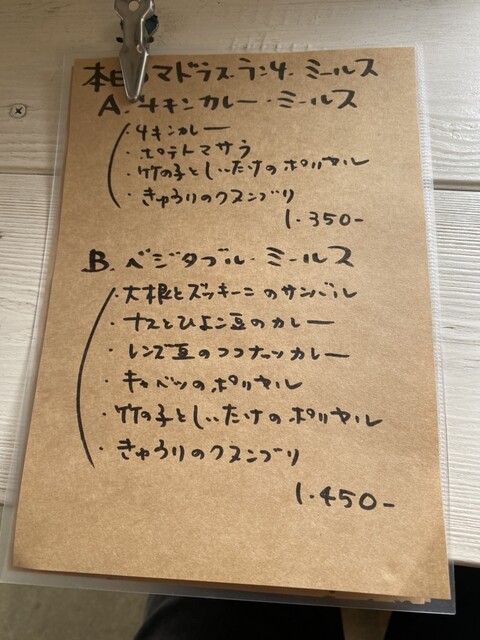 本日のマドラスランチ ミールス
A. チキンカレー・ミールス
・チキンカレー
・ポテトマサラ
・竹の子としいたけのポリヤル
・きゅうりのクヌンブリ
1.350-
B. ベジタブル・ミールス
・大根とズッキーニのサンバル
・ナスとひよこ豆のカレー
・レンズ豆のココナッツカレー
・キャベツのポリヤル
・竹の子としいたけのポリヤル
・きゅうりのクヌンブリ
1.450-